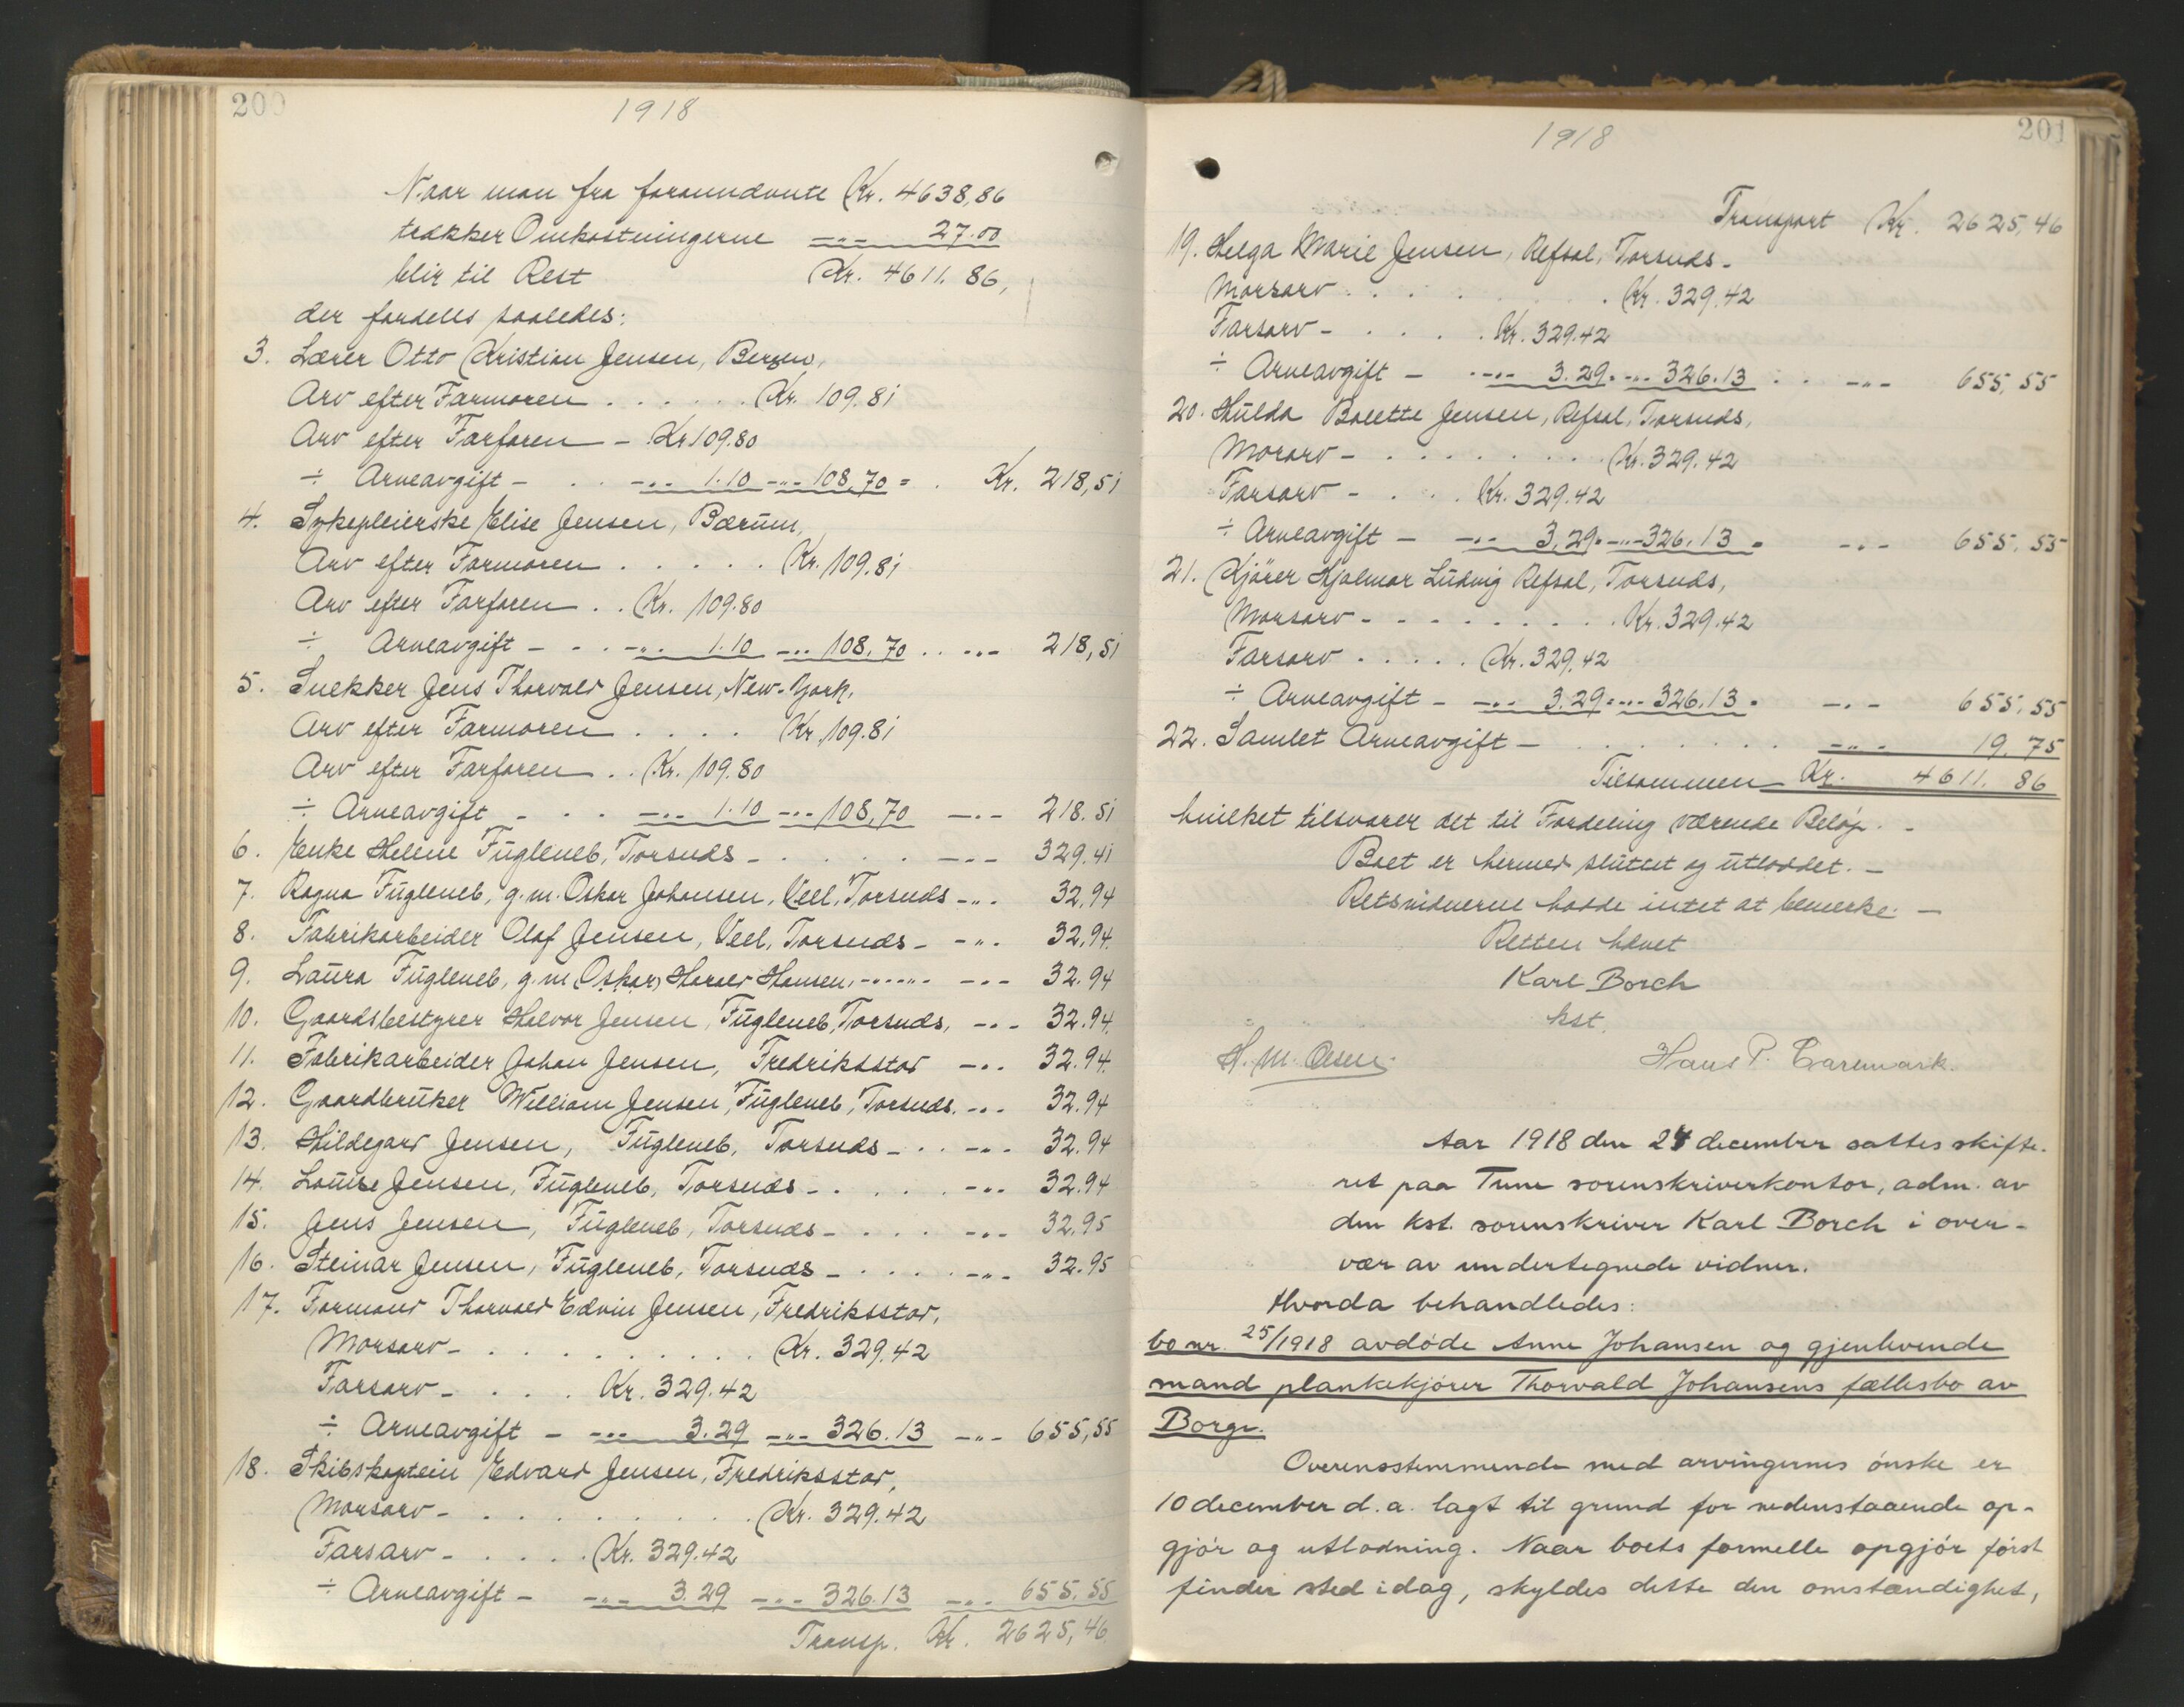 200
1918
Naar man fra foranndvnte Kr. 4638,86
trækker Omkostningerne -"- 27.00
blir til Rest Kr. 4611.86,
der fordeles saaledes:
3. Lærer Otto Kristian Jensen, Bergen,
Arv efter Farmoren . . . . . . Kr. 109.81
Arv efter Farfaren - Kr 109.80
÷ Arveavgift - . . -"- 1.10 -"- 108,70 = . Kr. 218,51
4. Sykepleierske Elise Jensen, Bærum,
Arv efter Farmoren . . . . . Kr. 109.81
Arv efter Farfaren . . Kr. 109.80
÷ Arveavgift - . . -"- 1.10 -"- 108.70 . . -"- 218,51
5. Snekker Jens Thorvald Jensen, New-York,
Arv efter Farmoren . . . . Kr. 109.81
Arv efter Farfaren . . Kr. 109.80
÷ Arveavgift - . . -"- 1.10 -"- 108,70 -"- 218.51
6. Enke Helene Fugleneb, Torsnes - . . . . . -"- 329.41
7. Ragna Fugleneb, g.m. Oskar Johansen, Veel, Torsnes -"- 32,94
8. Fabrikarbeider Olaf Jensen, Veel, Torsnes - -"- 32,94.
9. Laura Fugleneb, g.m (Oskar) Harald Hansen, -"- -"- -"- 32.94
10. Gaardsbestyrer Halvor Jensen, Fugleneb, Torsnes, -"- 32.94.
11. Fabrikarbeider Johan Jensen, Fredriksstad -"- 32.94.
12. Gaardbruker William Jensen, Fugleneb, Torsnes. -"- 32.94
13. Hildegard Jensen, Fugleneb, Torsnes - . . -"- 32.94
14. Louise Jensen, Fugleneb, Torsnes - . . . . -"- 32.94
15. Jens Jensen, Fugleneb, Torsnes - . . . -"- 32.95
16. Steinar Jensen, Fugleneb, Torsnes - . . . . -"- 32.95
17. Formand Thorvald Edvin Jensen, Fredriksstad,
Morsarv - . . . . . . . . . Kr. 329.42
Farsarv - . . . Kr. 329.42
÷ Arveavgift - -"- 3.29 -"- 326.13 -"- 655,55
18. Skibskaptein Edvard Jensen, Fredriksstad,
Morsarv - . . . . . . . . . Kr. 329.42
Farsarv - . . . . Kr. 329.42
÷ Arveavgift - -"- 3.29 -"- 326.13 -"- 655.55
Transp. Kr. 2625,46
201
1918
Transport Kr. 2625,46
19. Helga Marie Jensen, Refsal, Torsnes -
Morsarv . . . . . . . . Kr. 329.42
Farsarv - . . . . Kr. 329.42
÷ Arveavgift - -"- 3.29 = -"- 326.13 . . -"- 655,55
20. Hulda Bolette Jensen, Refsal, Torsnes,
Morarv - . . . . . . . . Kr. 329.42
Farsarv - . . . Kr. 329.42
÷ Arveavgift - -"- 3,29 = -"- 326.13 = -"- 655.55
21. Kjører Hjalmar Ludvig Refsal, Torsnes,
Morsarv - . . . . . . . . Kr. 329.42
Farsarv . . . . . Kr. 329,42
÷ Arveavgift - -"- 3.29 = -"- 326,13 = -"- 655,55
22. Samlet Arveavgift - . . . . . . . -"- 19,75
Tilsammen Kr. 4611.86
hvilket tilsvarer det til Fordeling værende Beløp. -
Boet er hermed sluttet og utloddet. -
Retsvidnerne hadde intet at bemerke. -
Retten hævet
Karl Borch
kst.
H. M. Olsen. Hans P. Caremark.
Aar 1918 den 24 december sattes skifte-
ret paa Tune sorenskriverkontor, adm. av
den kst. sorenskriver Karl Borch i over-
vær av undertegnede vidner.
Hvorda behandledes:
bo nr. 25/1918 avdøde Anne Johansen og gjenlevende
mand plankekjører Thorvald Johansens fællesbo av
Borge.
Overensstemmende med arvingernes ønske er
10 december d.a. lagt til grund for nedenstaaende op-
gjør og utlodning. Naar boets formelle opgjør først
finder sted idag, skyldes dette den omstændighet,